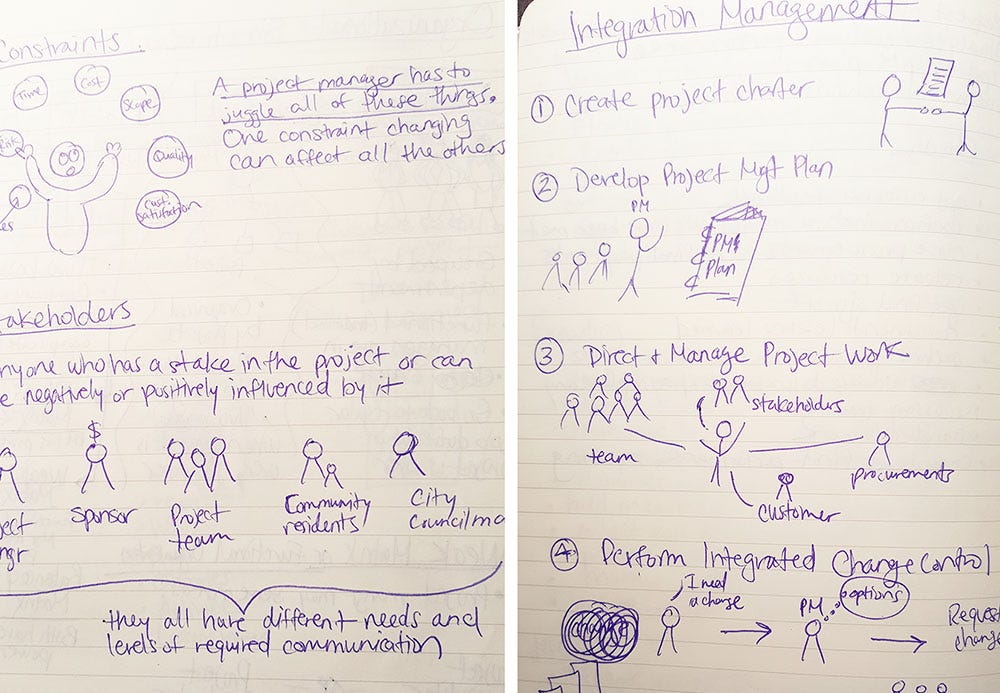 Constraints.
Time
Cost
Scope
Quality
Cust.
satisfaction
A project manager has to
juggle all of these things.
One constraint changing
can affect all the others
akeholders
nyone who has a stake in the project or can
e negatively or positively influenced by it
$
ject
ngr
Sponsor
Project
team
Community
residents
City
Councilma
they all have different needs and
levels of required communication
Integration Management
① Create project charter
② Develop Project Mgt Plan
PM
Plan
③ Direct + Manage Project Work
team
stakeholders
procurements
customer
④ Perform Integrated Change Control
I need
a change
PM
options
Request
change